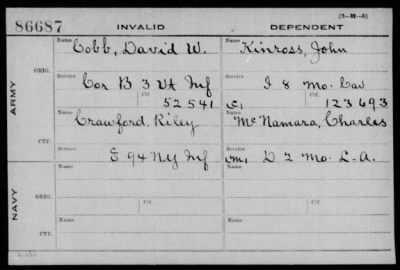 86687 INVALID DEPENDENT (3-M-5)
ARMY
ORIG.
Name Cobb, David W. Name Kinross, John
Service Cor B 3 Vt Inf Service I 8 Mo. Cav
Ctf. 52541 (C) Ctf. 123693
CTF.
Name Crawford, Riley Name McNamara, Charles
Service E 94 NY Inf Service (m) D 2 Mo. L.A.
NAVY
ORIG.
Name Name
Service Ctf. Service Ctf.
CTF.
Name Name
Service Service